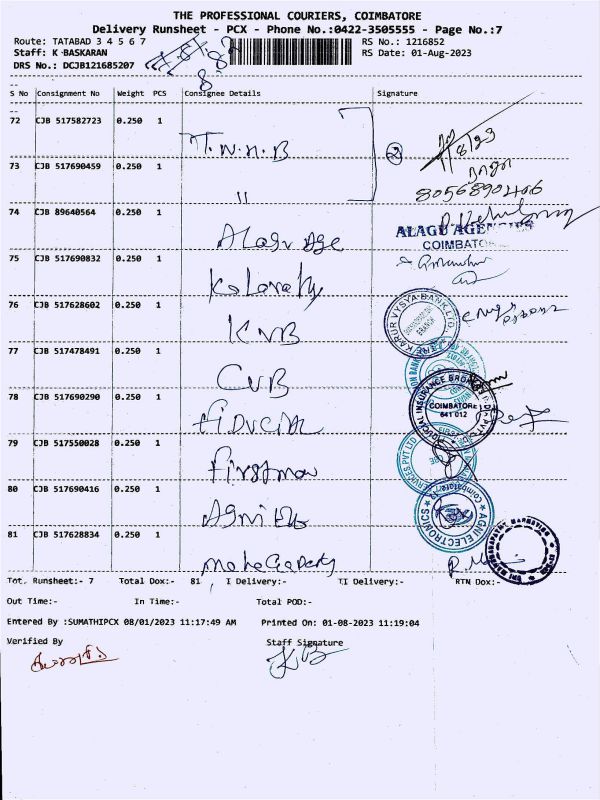 THE PROFESSIONAL COURIERS, COIMBATORE
Delivery Runsheet - PCX - Phone No.:0422-3505555 - Page No.:7
Route: TATABAD 3 4 5 6 7
RS No.: 1216852
Staff: K BASKARAN
RS Date: 01-Aug-2023
DRS No.: DCJB121685207
S No Consignment No Weight PCS Consignee Details Signature
72 CJB 517582723 0.250 1 T.N.H.B
2
1/8/23
73 CJB 517690459 0.250 1 "
8056890406
74 CJB 89640564 0.250 1 Alagu Age
ALAGU AGENCIES
COIMBATORE
75 CJB 517690832 0.250 1
76 CJB 517628602 0.250 1 KVB
KARUR VYSYA BANK LTD.
77 CJB 517478491 0.250 1 CUB
78 CJB 517690290 0.250 1 Fiducial
COIMBATORE
641 012
79 CJB 517550028 0.250 1 Firstman
SERVICES PVT LTD
80 CJB 517690416 0.250 1
AGNI ELECTRONICS
Coimbatore-12
81 CJB 517628834 0.250 1 Maha Ganapathy
Tot. Runsheet:- 7 Total Dox:- 81 I Delivery:- II Delivery:- RTN Dox:-
Out Time:- In Time:- Total POD:-
Entered By :SUMATHIPCX 08/01/2023 11:17:49 AM Printed On: 01-08-2023 11:19:04
Verified By Staff Signature
KB